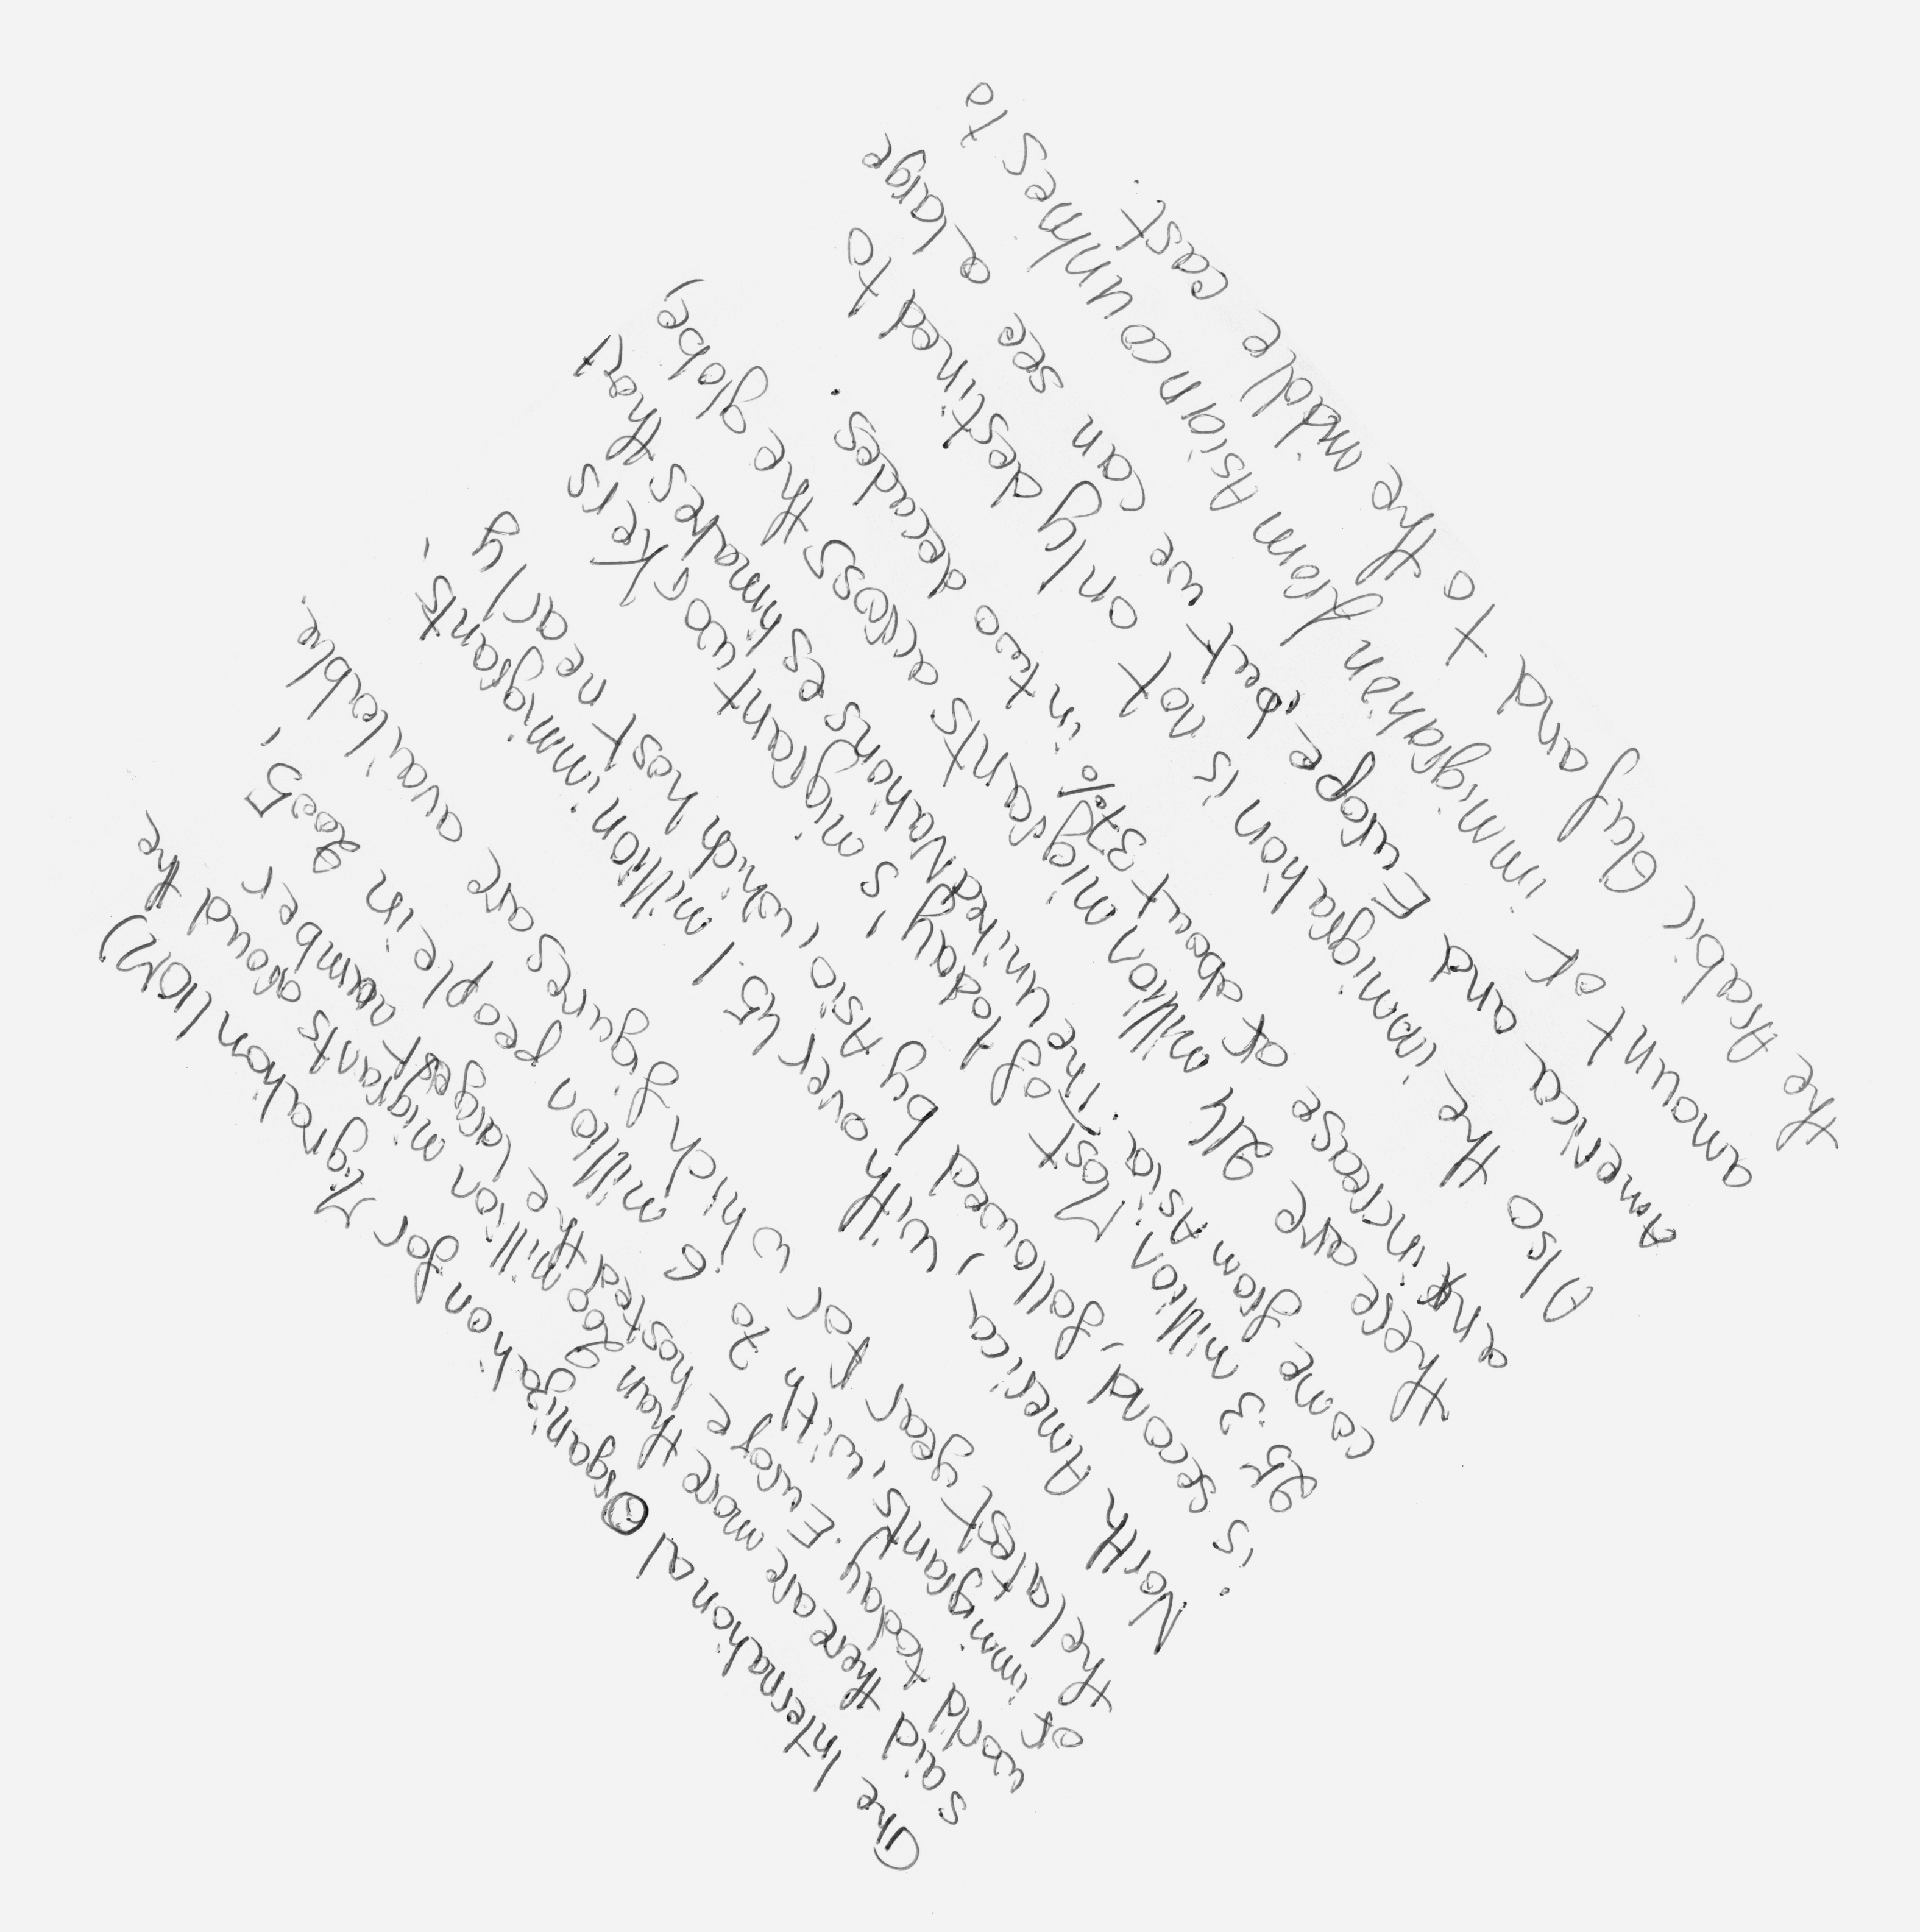 The International Organization for Migration (IOM)
said there are more than 200 million migrants around the
world today. Europe hosted the largest number
of immigrants, with 70.6 million people in 2005,
the latest year for which figures are available.
North America, with over 45.1 million immigrants,
is second, followed by Asia, which host nearly
25.3 million. Most of today's migrant workers
come from Asia. The United Nations estimates that
there are 214 million migrants across the globe,
an increase of about 37% in two decades.
Also the immigration is not only destined to
America and Europe but we can see a large
amount of immigration from Asian countries to
the Arabic Gulf and to the middle east.